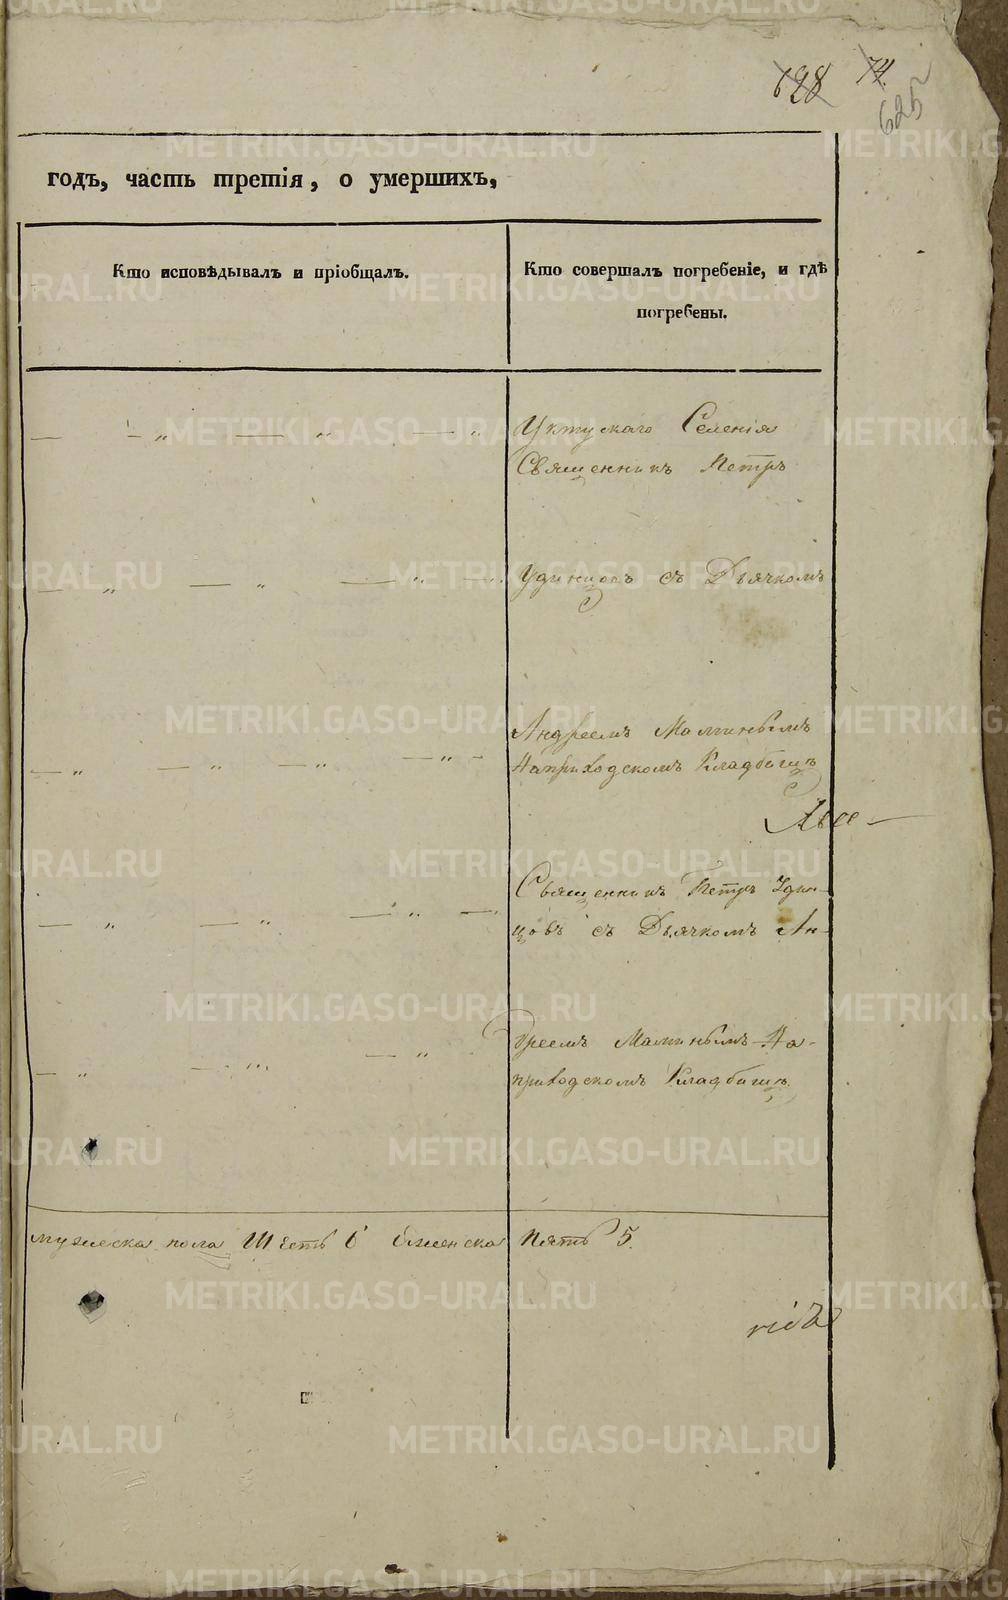 628 74.
625
годъ, часть третія, о умершихъ,
Кто исповѣдывалъ и пріобщалъ.
Кто совершалъ погребеніе, и гдѣ
погребены.
Уктускаго Селенія
Священникъ Петръ
Удинцовъ съ Дьячкомъ
Андреемъ Малиннымъ
На приходскомъ Кладбищѣ
Священникъ Петръ Удин-
цовъ съ Дьячкомъ Ан-
дреемъ На-
приходскомъ Кладбищѣ
мужеска пола Шесть 6 женска Пять 5.
METRIKI.GASO-URAL.RU